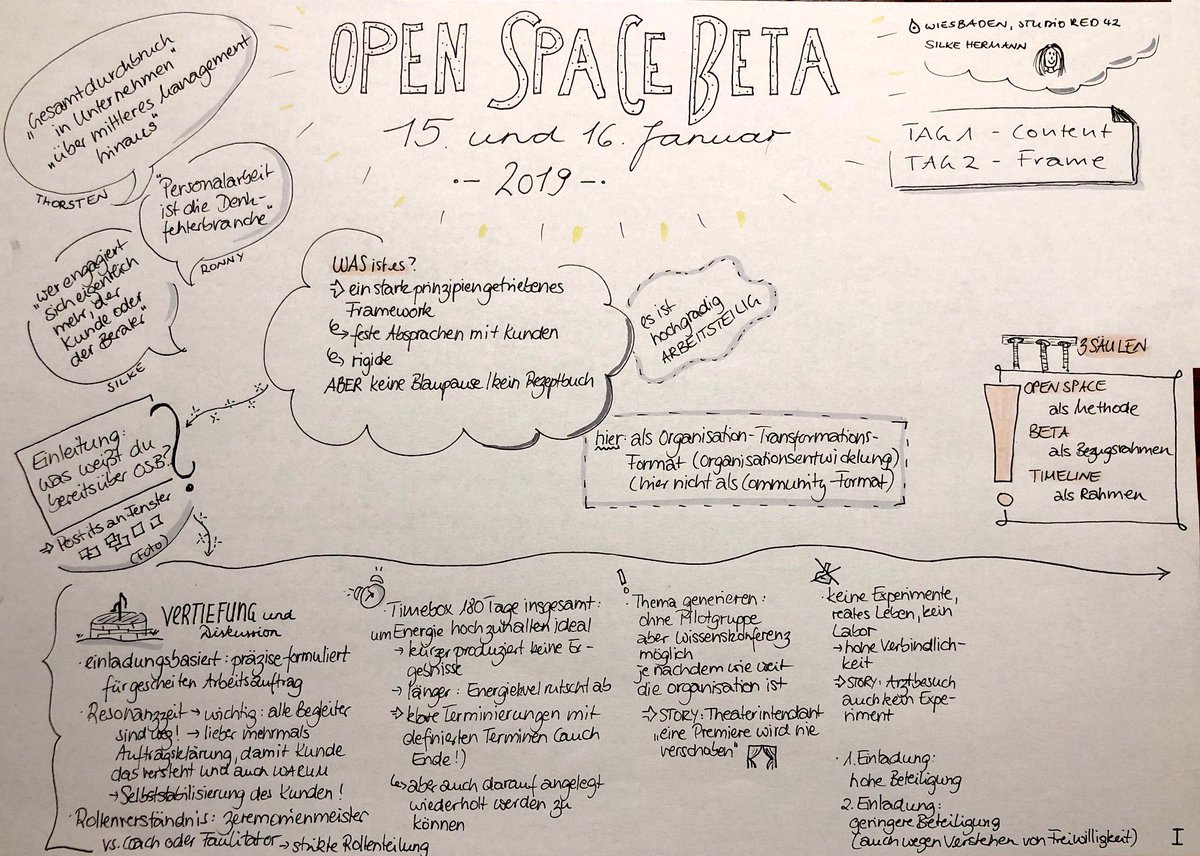 OPEN SPACE BETA
15. und 16. Januar
2019
WIESBADEN, STUDIO RED 42
SILKE HERMANN
TAG 1 - Content
TAG 2 - Frame
"Gesamtdurchbruch
in Unternehmen"
"über mittleres Management
hinaus"
THORSTEN
"Personalarbeit
ist die Denk-
fehlerbranche"
RONNY
"wer engagiert
sich eigentlich
mehr, der
Kunde oder
der Berater"
SILKE
WAS ist es?
ein stark prinzipiengetriebenes
Framework
feste Absprachen mit Kunden
rigide
ABER keine Blaupause/kein Rezeptbuch
es ist
hochgradig
ARBEITSTEILIG
3 SÄULEN
OPEN SPACE
als Methode
BETA
als Bezugsrahmen
TIMELINE
als Rahmen
hier: als Organisation-Transformations-
Format (Organisationsentwicklung)
(hier nicht als Community-Format)
Einleitung:
was weißt du
bereits über OSB?
→ Postits an Fenster
(Foto)
VERTIEFUNG und
Diskussion
· einladungsbasiert: präzise formuliert
für gescheiten Arbeitsauftrag
· Resonanzzeit → wichtig: alle Begleiter
sind weg! → lieber mehrmals
Auftragsklärung, damit Kunde
das versteht und auch WARUM
→ Selbststabilisierung des Kunden!
· Rollenverständnis: Zeremonienmeister
vs. Coach oder Facilitator → strikte Rollenteilung
· Timebox 180 Tage insgesamt:
um Energie hochzuhalten ideal
→ kürzer produziert keine Er-
gebnisse
→ länger: Energielevel rutscht ab
→ klare Terminierungen mit
definierten Terminen (auch
Ende!)
↳ aber auch darauf angelegt
wiederholt werden zu
können
· Thema generieren:
ohne Pilotgruppe
aber Wissenskonferenz
möglich
je nachdem wie weit
die Organisation ist
→ STORY: Theaterintendant
"eine Premiere wird nie
verschoben"
· keine Experimente,
reales Leben, kein
Labor
→ hohe Verbindlich-
keit
→ STORY: Arztbesuch
auch kein Expe-
riment
· 1. Einladung:
hohe Beteiligung
2. Einladung:
geringere Beteiligung
(auch wegen Verstehen von Freiwilligkeit)
I